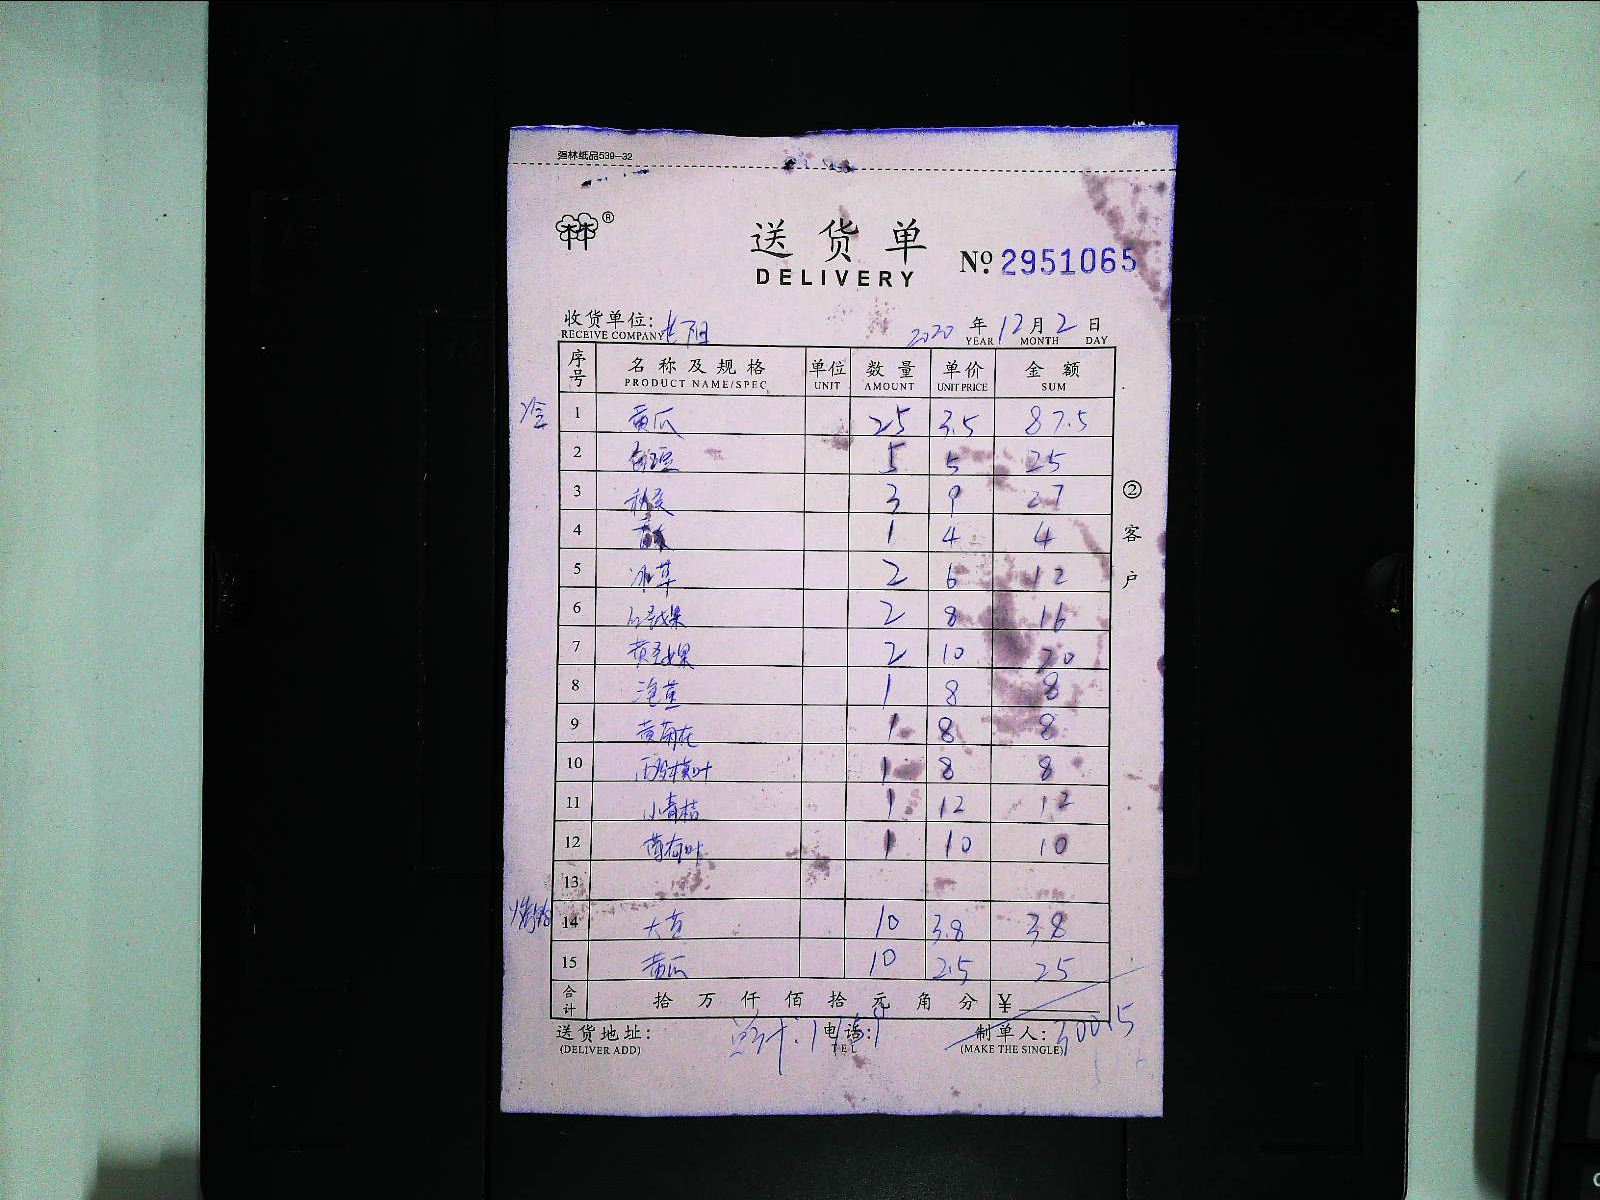 强林纸品539-32
®
送货单
DELIVERY
№ 2951065
收货单位:
RECEIVE COMPANY
2020 年 12 月 2 日
YEAR MONTH DAY
序号 名称及规格 单位 数量 单价 金额
PRODUCT NAME/SPEC UNIT AMOUNT UNIT PRICE SUM
1 黄瓜 25 3.5 87.5
2 5 5 25
3 秋葵 3 9 27
4 1 4 4
5 冰草 2 6 12
6 2 8 16
7 2 10 20
8 1 8 8
9 黄菊花 1 8 8
10 1 8 8
11 小青桔 1 12 12
12 薄荷叶 1 10 10
13
14 大 10 3.8 38
15 黄瓜 10 2.5 25
合计 拾 万 仟 佰 拾 元 角 分 ¥
② 客户
送货地址: 电话: 制单人: 300.5
(DELIVER ADD) TEL (MAKE THE SINGLE)